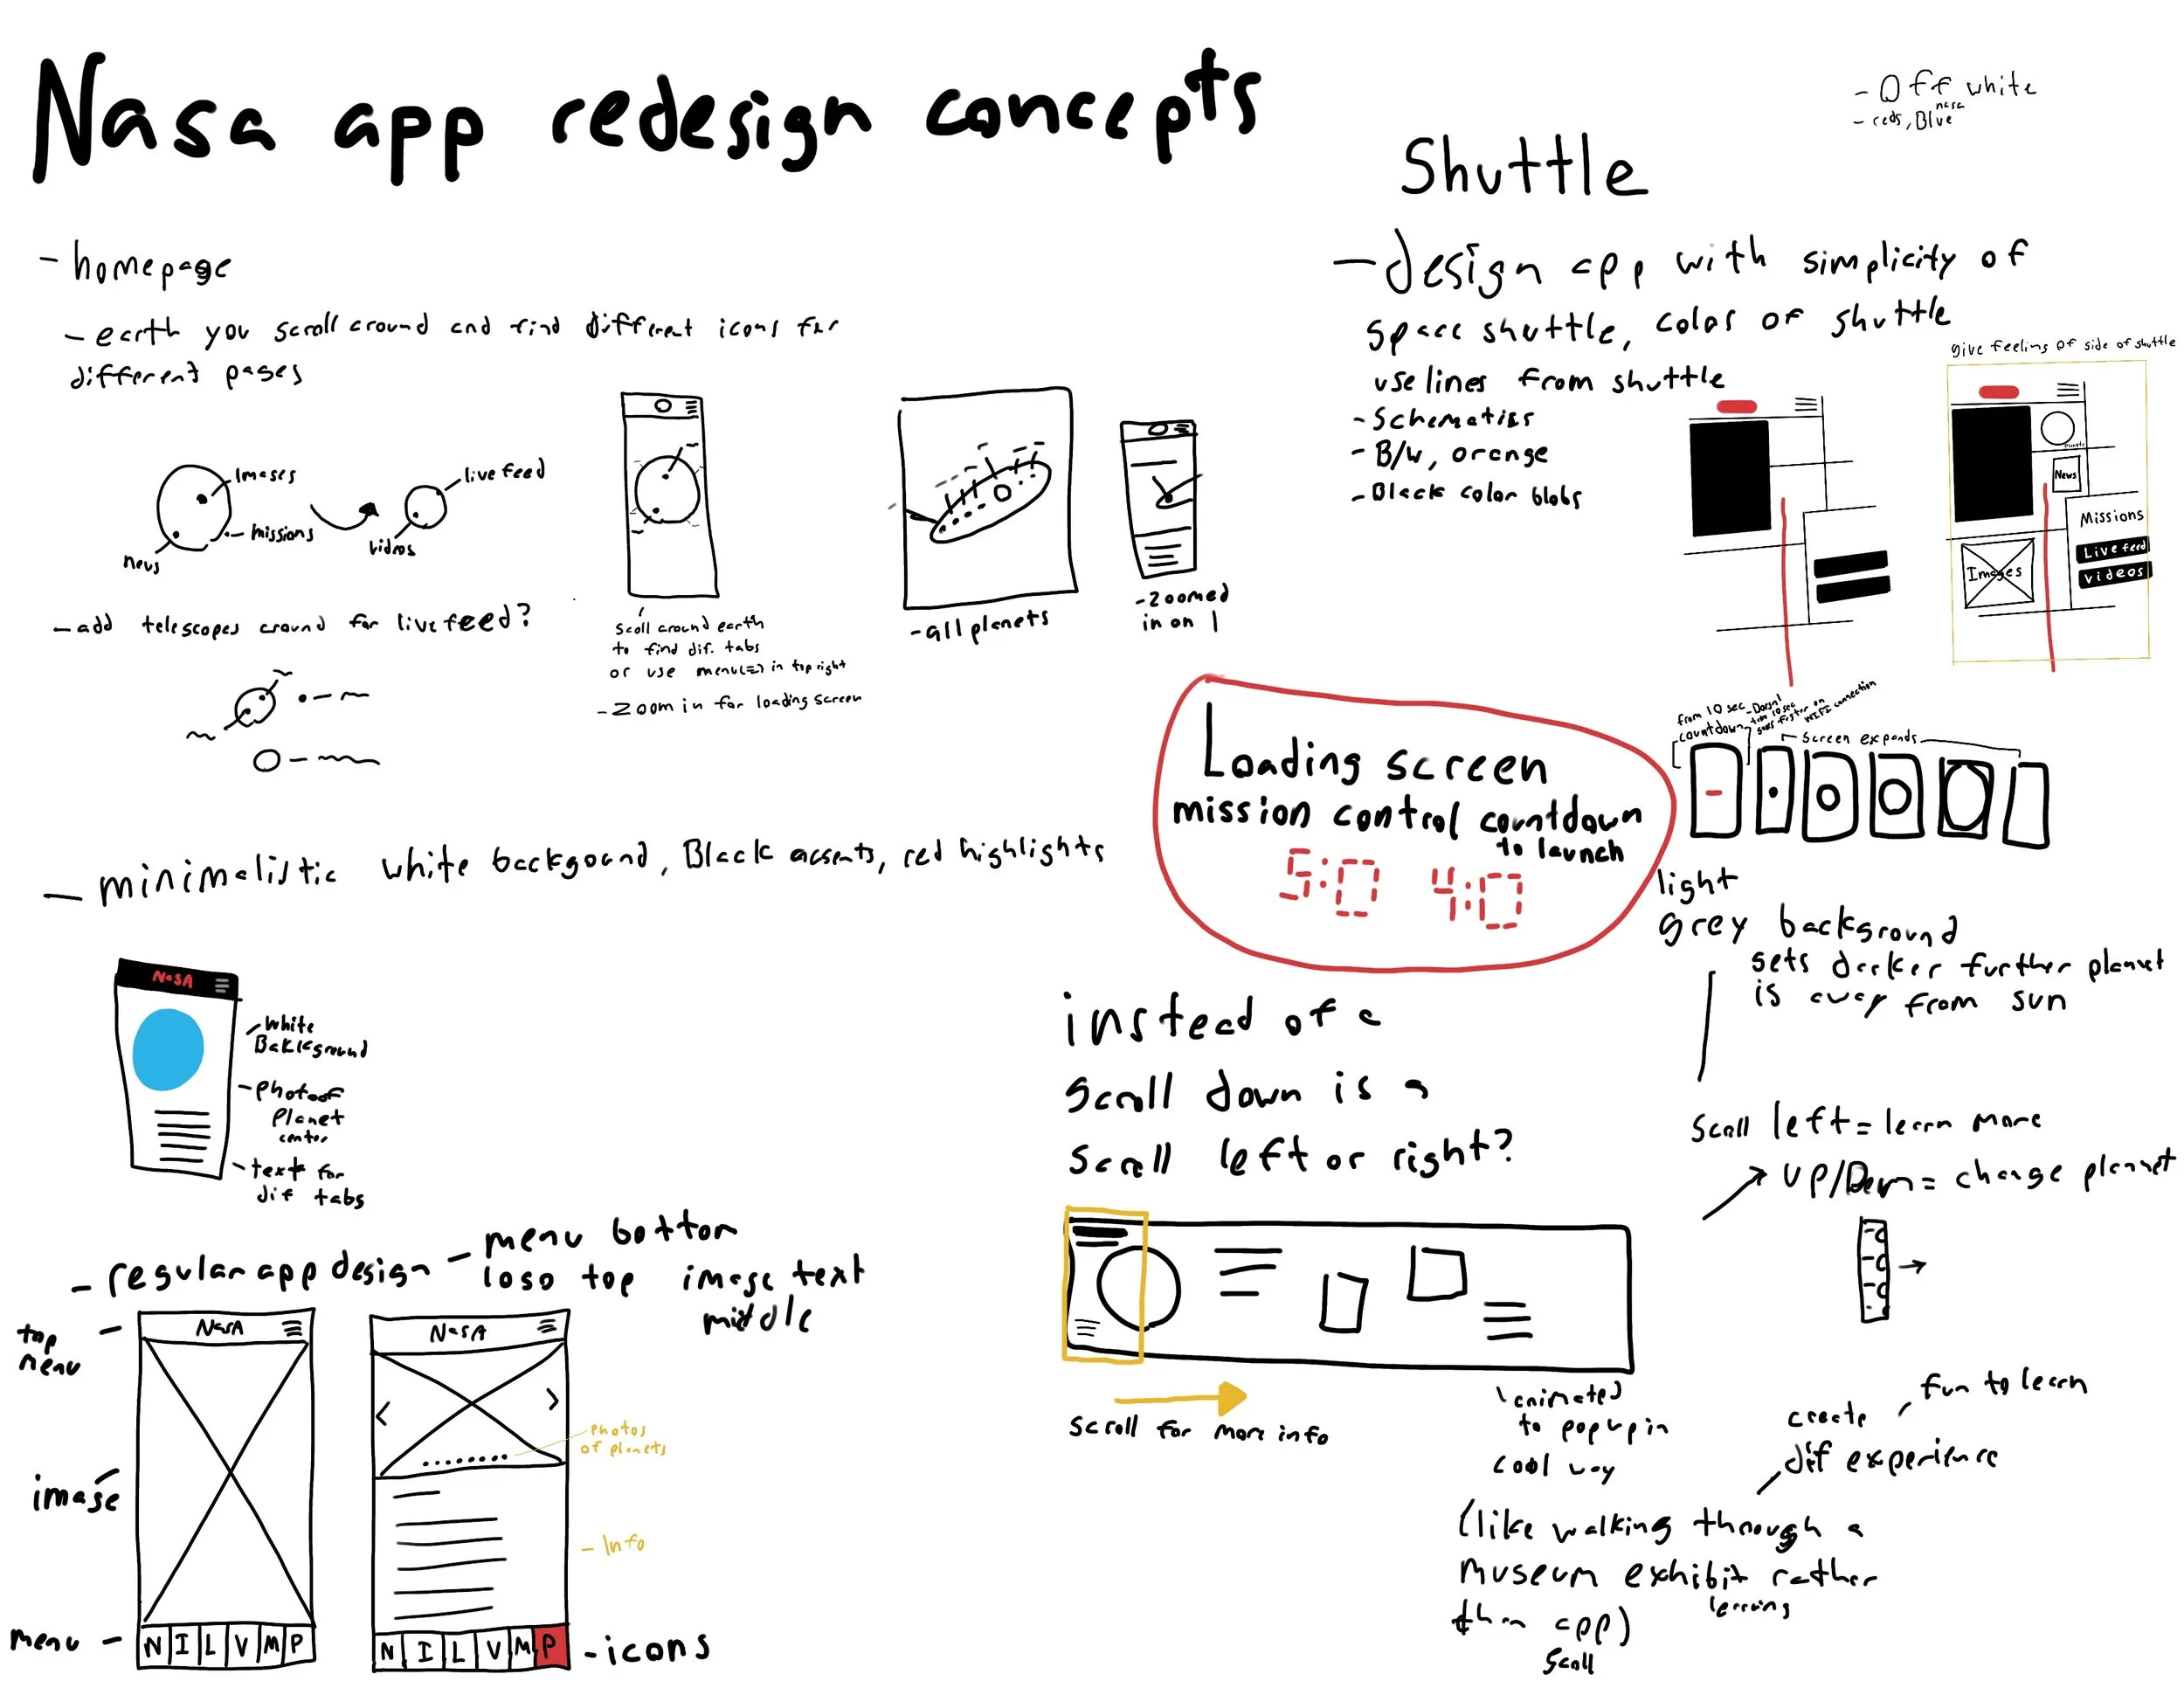 Nasa app redesign concepts
- homepage
- earth you scroll around and find different icons for
different pages
Images
missions
news
live feed
vidros
- add telescopes around for live feed?
Scoll around earth
to find dif. tabs
or use menu(=) in top right
- Zoom in for loading screen
- all planets
- zoomed
in on 1
- minimalistic white backgound, Black accents, red highlights
NASA
white
Background
- photo of
planet
center
- text for
dif tabs
- regular app design - menu bottom
logo top image text
middle
top
menu
NASA
image
menu -
N I L V M P
NASA
< >
photos
of planets
- Info
N I L V M P
- icons
- Off white
nasa
- reds, Blue
Shuttle
- design app with simplicity of
space shuttle, color of shuttle
use lines from shuttle
- Schematics
- B/W, orange
- Black color blobs
give feeling of side of shuttle
planets
News
Missions
Live feed
Videos
Images
Loading screen
mission control countdown
to launch
5:0 4:0
from 10 sec
countdown
- Doesn't
take 10 sec
goes faster on
WIFI connection
screen expands
light
grey background
gets darker further planet
is away from sun
instead of a
scroll down is a
scroll left or right?
scroll left = learn more
UP/Down = change planet
scroll for more info
(animated)
to pop up in
cool way
fun to learn
create
dif experience
(like walking through a
museum exhibit rather
learning
than app)
scroll